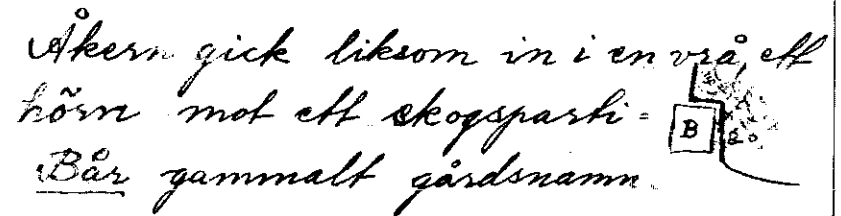 Åkern gick liksom in i en vrå, ett
hörn mot ett skogsparti =
B
Bår gammalt gårdsnamn.